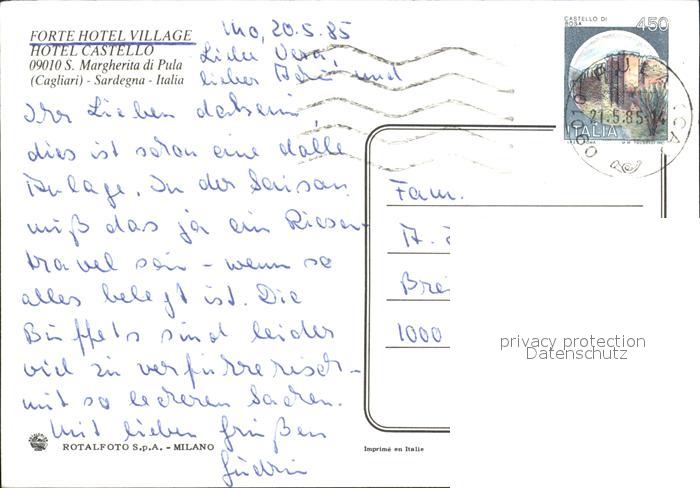 FORTE HOTEL VILLAGE
HOTEL CASTELLO
09010 S. Margherita di Pula
(Cagliari) - Sardegna - Italia
Mo, 20.5.85
Liebe Vera,
lieber und
Ihr Lieben daheim,
dies ist schon eine dolle
Anlage. In der Saison
muß das ja ein Riesen-
travel sein - wenn so
alles belegt ist. Die
Büffets sind leider
viel zu verführerisch -
mit so leckeren Sachen.
Mit lieben Grüßen
Gudrun
ROTALFOTO S.p.A. - MILANO
Imprimé en Italie
CASTELLO DI
ROSA
450
ITALIA
21.5.85-14
09010
Fam.
A.
Bre
1000
privacy protection
Datenschutz